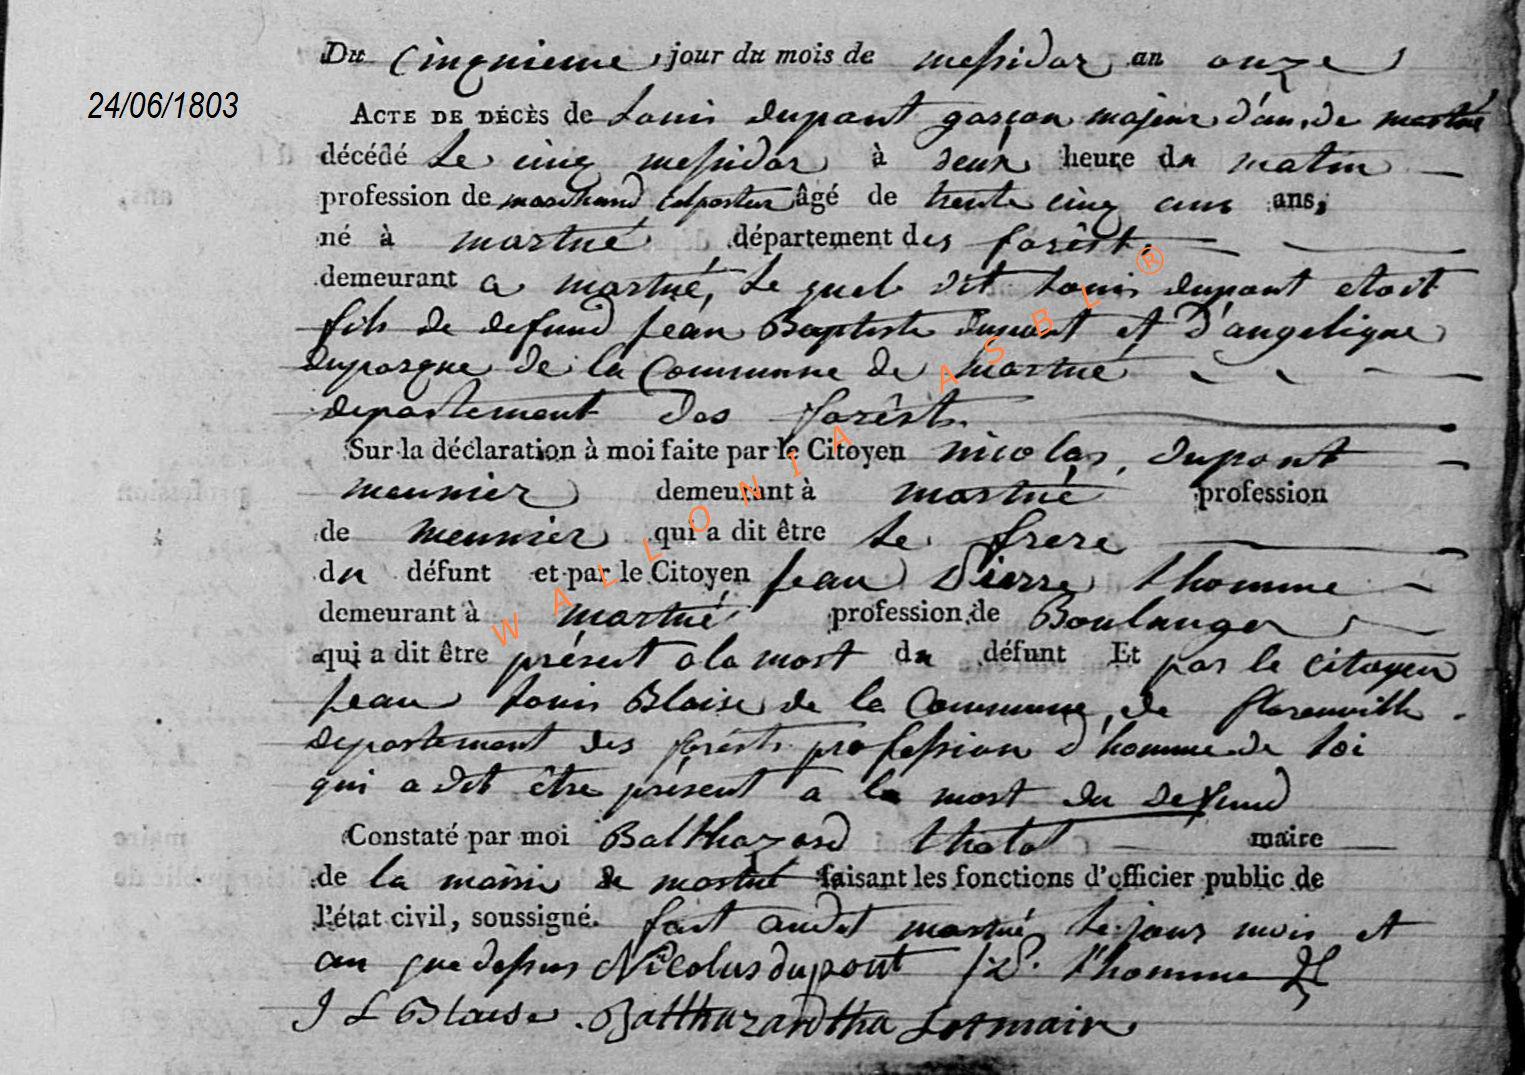 Du Cinquieme jour du mois de messidor an onze
24/06/1803
ACTE DE DÉCÈS de Louis dupont garçon majeur d'an. de martué
décédé Le cinq messidor à deux heure du matin
profession de marchand Colporteur âgé de trente cinq ans ans,
né à martué département des forêst.
demeurant a martué, Le quel dit Louis dupont etoit
fils de defund jean Baptiste dupont et D'angelique
duparque de la Commune de martué
departement des forêsts
Sur la déclaration à moi faite par le Citoyen nicolas dupont
meunier demeurant à martué profession
de meunier qui a dit être Le frere
du défunt et par le Citoyen jean Pierre thomme
demeurant à martué profession de Boulanger
qui a dit être présent a la mort du défunt Et par le citoyen
jean Louis Blaise de la Commune de florenville
departement des forêsts profession d'homme de loi
qui a dit être présent a la mort du defund
Constaté par moi Balthazard thalot maire
de la mairie de martué faisant les fonctions d'officier public de
l'état civil, soussigné. fait audit martué Le jour mois et
an que dessus Nicolas dupont J P. thomme
J L Blaise Balthazard tha Lot maire
WALLONIA ASBL ®